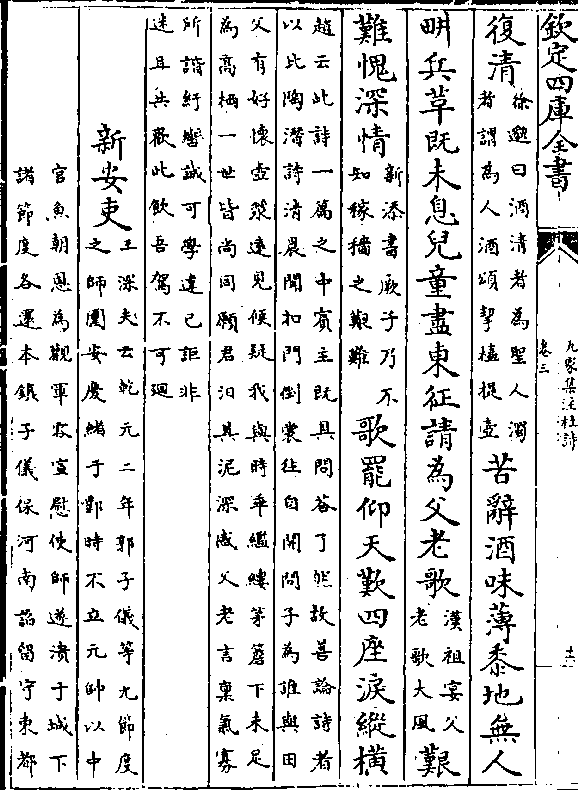 欽定四庫全書
九家集注杜詩
卷三
復清徐邈曰酒清者為聖人濁
者謂為人酒頌挈榼提壺苦辭酒味薄黍地無人
畊兵草既未息兒童盡東征請為父老歌漢祖宴父
老歌大風艱
難愧深情新添書厥子乃不
知稼穡之艱難歌罷仰天歎四座淚縱橫
趙云此詩一篇之中賓主既具問荅了然故善論詩者
以比陶潛詩清晨聞扣門倒裳往自開問子為誰與田
父有好懷壺漿遠見候疑我與時乖繿縷茅簷下未足
為高栖一世皆尚同願君汨其泥深感父老言稟氣寡
所諧紆轡誠可學違已詎非
迷且共歡此飲吾駕不可廻
新安吏王深夫云乾元二年郭子儀等九節度
之師圍安慶緒于鄴時不立元帥以中
官魚朝恩為觀軍容宣慰使師遂潰于城下
諸節度各還本鎮子儀保河南詔留守東都